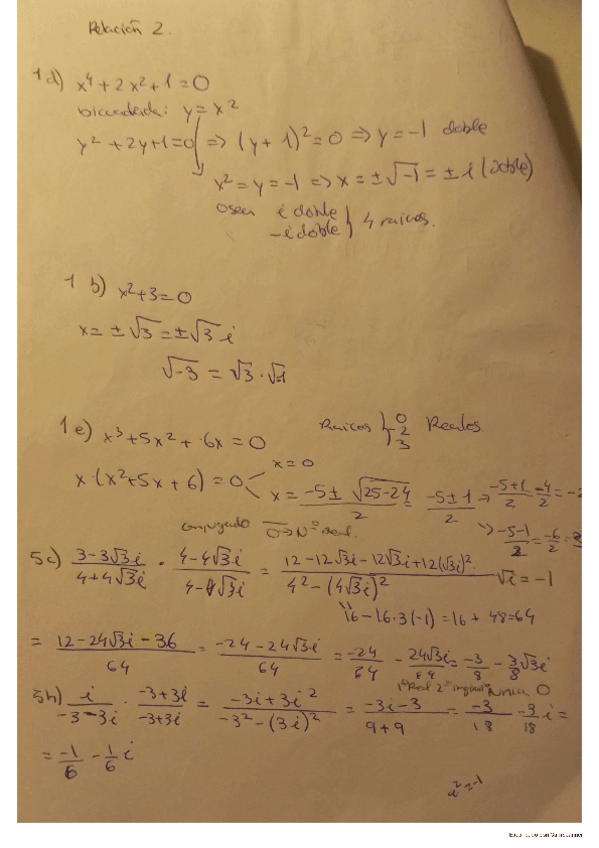 Relación 2.
1d) x⁴ + 2x² + 1 = 0
bicuadrada: y = x²
y² + 2y + 1 = 0 ⇒ (y + 1)² = 0 ⇒ y = -1 doble
x² = y = -1 ⇒ x = ±√-1 = ± i (doble)
osea i doble
-i doble } 4 raices.
1 b) x² + 3 = 0
x = ±√3 = ±√3 i
√-3 = √3 · √-1
1e) x³ + 5x² + 6x = 0
Raices } 0 -2 3 Reales
x · (x² + 5x + 6) = 0 < x = 0
x = -5 ± √25-24 / 2 = -5 ± 1 / 2 → -5+1 / 2 = -4 / 2 = -2
↘ -5-1 / 2 = -6 / 2 =
conjugado
5c) 3-3√3i / 4+4√3i · 4-4√3i / 4-4√3i = 12-12√3i-12√3i+12(√3i)² / 4²-(4√3i)²
√i = -1
16-16·3(-1) = 16 + 48 = 64
= 12-24√3i-36 / 64 = -24-24√3i / 64 = -24 / 64 - 24√3i / 64 = -3 / 8 - 3 / 8 √3i
5h) i / -3-3i · -3+3i / -3+3i = -3i+3i² / -3²-(3i)² = -3i-3 / 9+9 = -3 / 18 - 3 / 18 i =
= -1 / 6 - 1 / 6 i
i² = -1